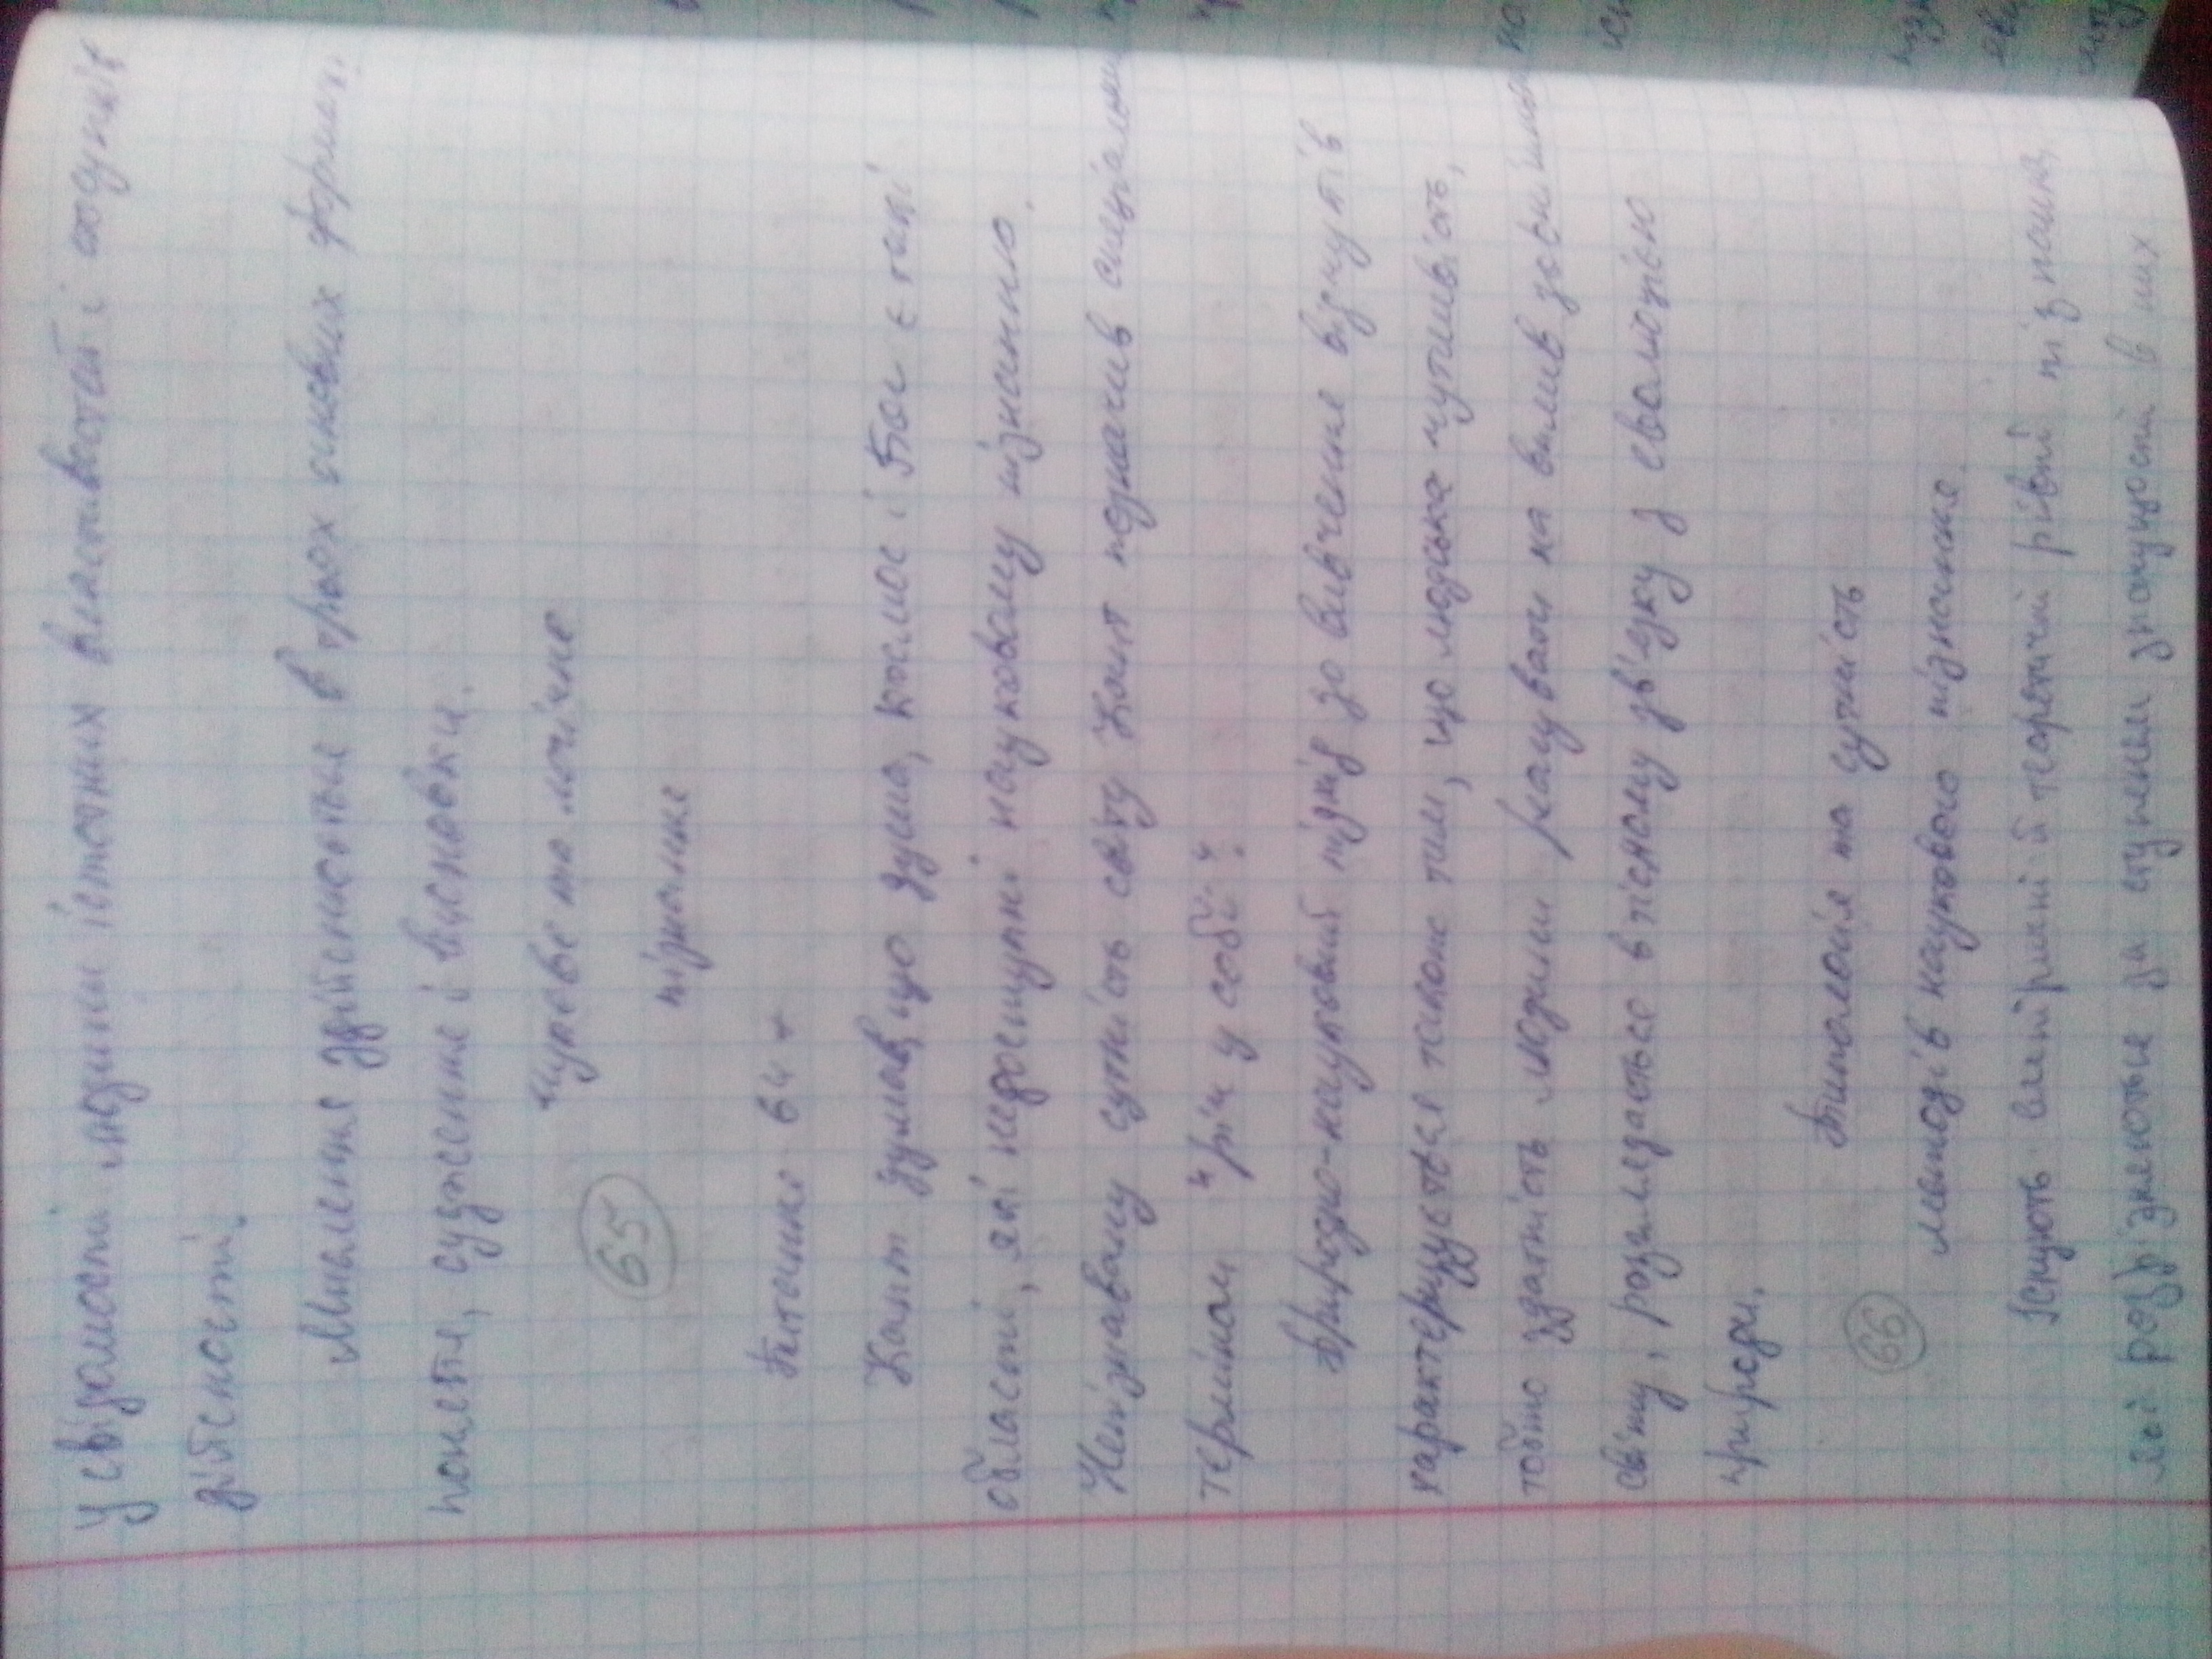 у свідомості людини істотних властивостей і стосунків
дійсності.
Мислення здійснюється в трьох основних формах:
поняття, судження і висновки.
чуттєве та логічне
65
пізнання
Питання 64 +
Кант думав, що душа, космос і Бог є такі
області, які недоступні науковому пізнанню.
Непізнавану сутність світу Кант позначив спеціальним
терміном "річ у собі".
Природно-науковий підхід до вивчення відчуттів
характеризується також тим, що людська чутливість,
тобто здатність людини реагувати на вплив зовнішнього
світу, розглядається в тісному зв'язку з еволюцією
природи.
Типологія та сутність
66
методів наукового пізнання.
Існують емпіричні й теоретичні рівні пізнання,
які розрізняються за ступенем значущості в них